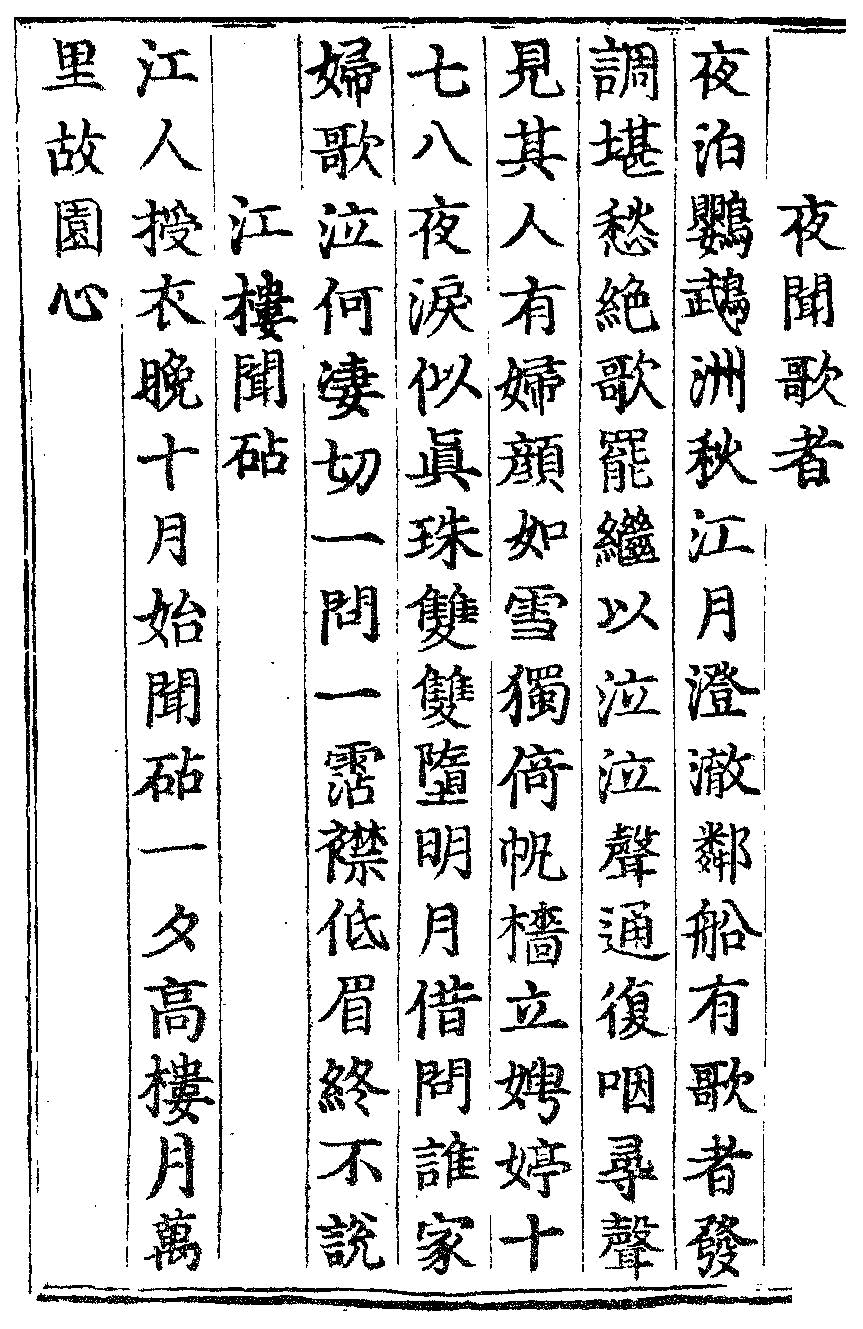 夜聞歌者
夜泊鸚鵡洲秋江月澄澈鄰船有歌者發
調堪愁絶歌罷繼以泣泣聲通復咽尋聲
見其人有婦顔如雪獨倚帆檣立娉婷十
七八夜淚似眞珠雙雙墮明月借問誰家
婦歌泣何淒切一問一霑襟低眉終不說
江樓聞砧
江人授衣晚十月始聞砧一夕高樓月萬
里故園心